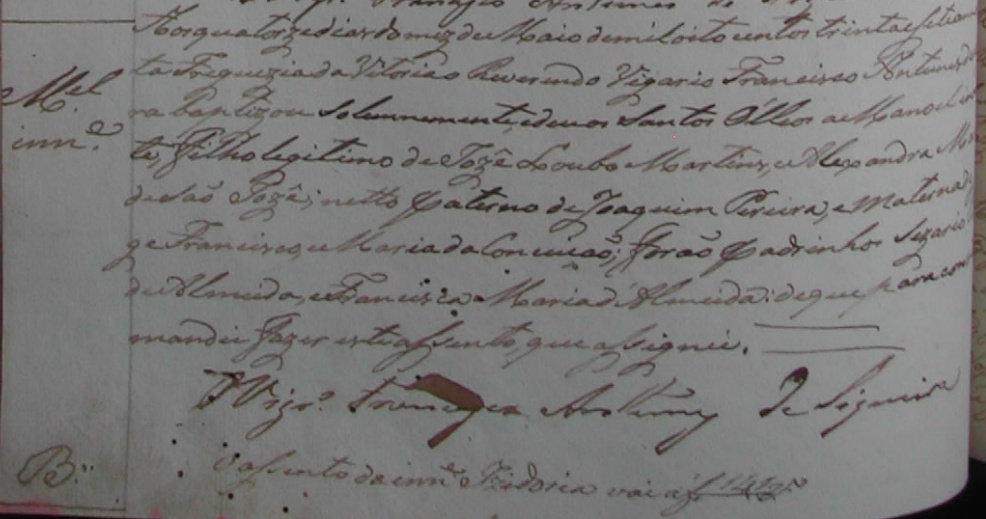 Aos quatorze dias do mez de Maio de mil oito centos trinta e sete an
ta Freguezia da Vitoria o Reverendo Vigario Francisco Antunes de
Mel
ra baptizou solemnemente, e deu os Santos Olleos a Manoel in
inn.e
te, Filho legitimo de Jozê Loubo Martins, e Alexandra Ma
de São Jozê; netto Paterno de Joaquim Pereira, e Materna
ge Francisco, e Maria da Conceicaõ; foraõ Padrinhos Sezario
de Almeida, e Francisca Maria d'Almeida: de que para con
mandei fazer este assento, que assignei.
O Vigr.o Francisco Antunes de Siqueira
B:
O assento da inn.e Izidoria vai a f 141